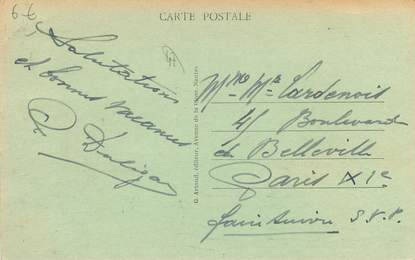 CARTE POSTALE
6-6
Salutations
et bonnes vacances
G. Artaud, éditeur, Avenue de la Close, Nantes
Mme Me Lardenois
41 Boulevard
de Belleville
Paris XIe
faire suivre S.V.P.